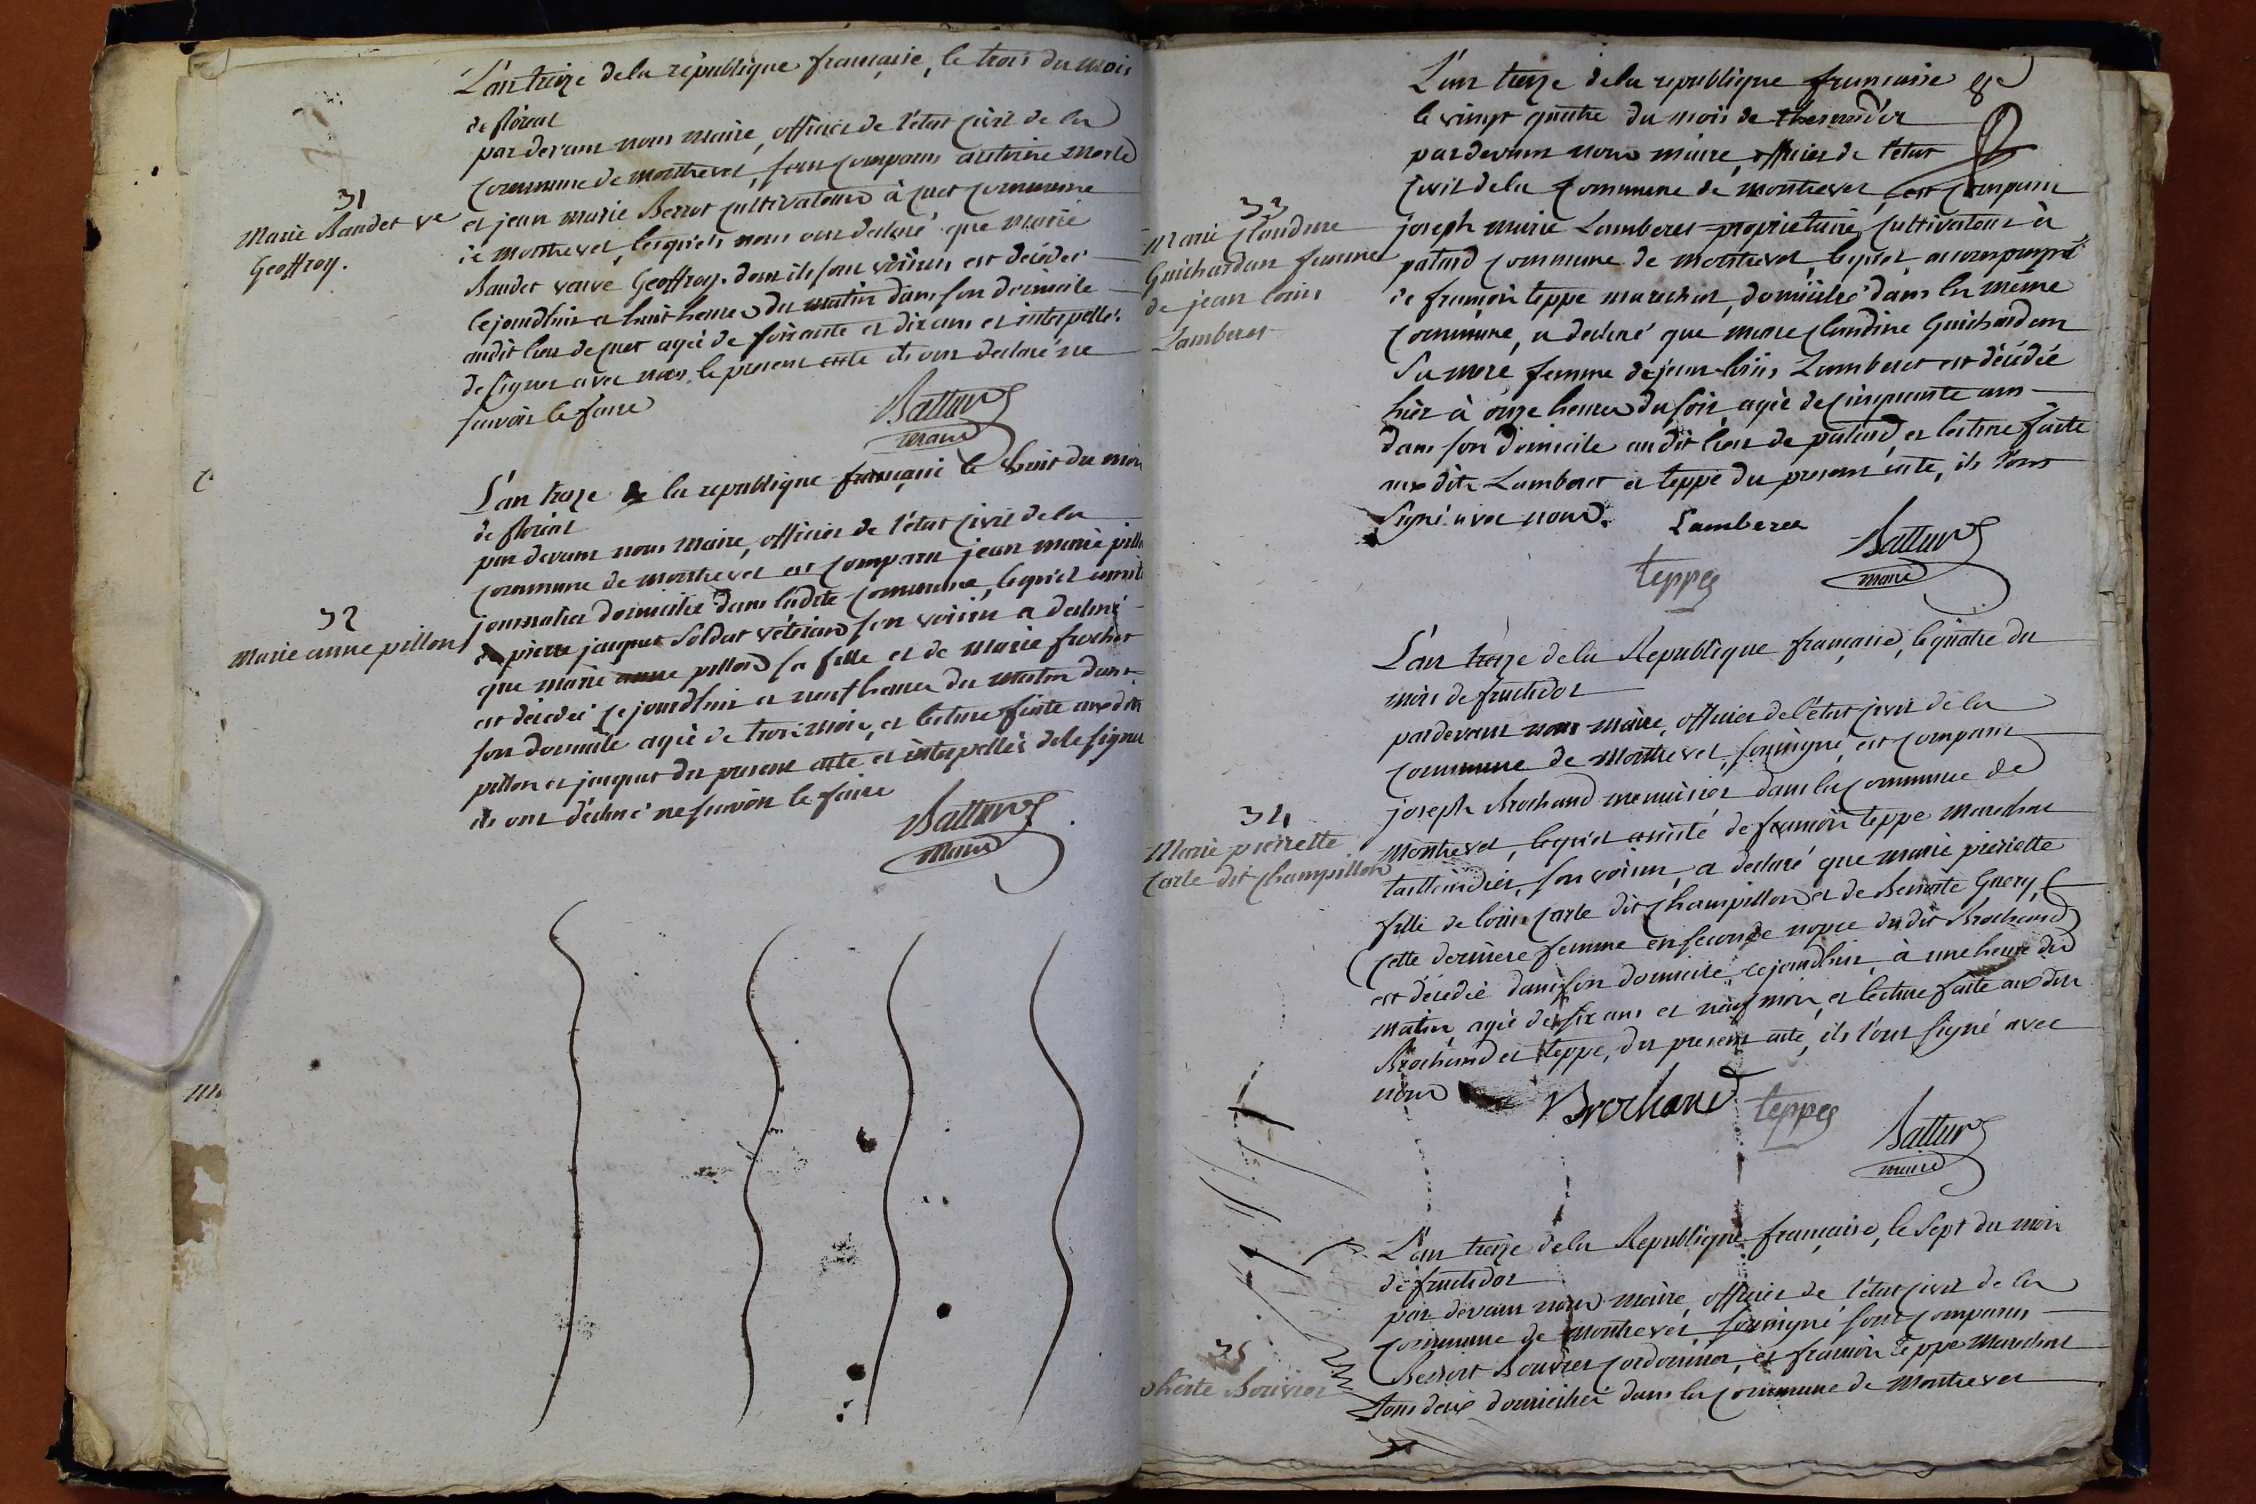 L'an treize de la république française, le trois du mois
de floréal
par devant nous maire, officier de l'état civil de la
commune de montrevel, sont comparus antoine morle
et jean marie Berrot cultivateurs à cuet commune
de montrevel, lesquels nous ont declaré que marie
31
Marie Baudet ve
Geoffroy.
Baudet veuve Geoffroy, dont ils sont voisins est décédée
cejourdhui a huit heures du matin dans son domicile
audit lieu de cuet agée de soixante et dix ans et interpellés
de signer avec nous le present acte ils ont declaré ne
savoir le faire
Battur
maire
L'an treize de la republique française le huit du mois
de floréal
par devant nous maire, officier de l'état civil de la
commune de montrevel est comparu jean marie pillon
journalier domicilié dans ladite commune, lequel assisté
32
Marie anne pillon
de pierre jacquet soldat vétéran son voisin a declaré
que marie anne pillon sa fille et de marie frochet
est décédée cejourdhui a neuf heures du matin dans
son domicile agée de trois mois, et lecture faite aux dits
pillon et jacquet du present acte et interpellés de le signer
ils ont déclaré ne savoir le faire
Battur
Maire
L'an treize de la republique française
le vingt quatre du mois de thermidor
pardevant nous maire, officier de l'état
civil de la commune de montrevel est comparu
33
Marie Claudine
Guichardan femme
de jean louis
Lamberet
joseph marie Lamberet propriétaire cultivateur à
commune de montrevel, lequel accompagné
de françois teppe marechal, domicilié dans la même
commune, a declaré que marie claudine Guichardan
sa mere femme de jean louis Lamberet est décédée
hier à onze heures du soir, agée de cinquante ans
dans son domicile audit lieu de et lecture faite
aux dits Lamberet et teppe du present acte, ils l'ont
signé avec nous.
Lamberet
Battur
maire
teppe
L'an treize de la Republique française, le quatre du
mois de fructidor
pardevant nous maire, officier de l'état civil de la
commune de Montrevel, soussigné, est comparu
joseph Brochand menuisier dans la commune de
34
Marie pierrette
carle dit champillon
montrevel, lequel assisté de françois teppe marechal
taillandier, son voisin, a declaré que marie pierrette
fille de louis carle dit champillon et de Benoite Guery,
cette derniere femme en seconde noyce dudit Brochand
est décédée dans son domicile, cejourdhui, à une heure du
matin, agée de six ans et neuf mois, et lecture faite aux dits
Brochand et teppe, du present acte, ils l'ont signé avec
nous
Brochand
teppe
Battur
maire
L'an treize de la Republique française, le sept du mois
de fructidor
par devant nous maire, officier de l'état civil de la
commune de montrevel, soussigné sont comparus
35
Bouvier
Benoit Bouvier cordonnier, et françois teppe marechal
tous deux domiciliés dans la commune de Montrevel